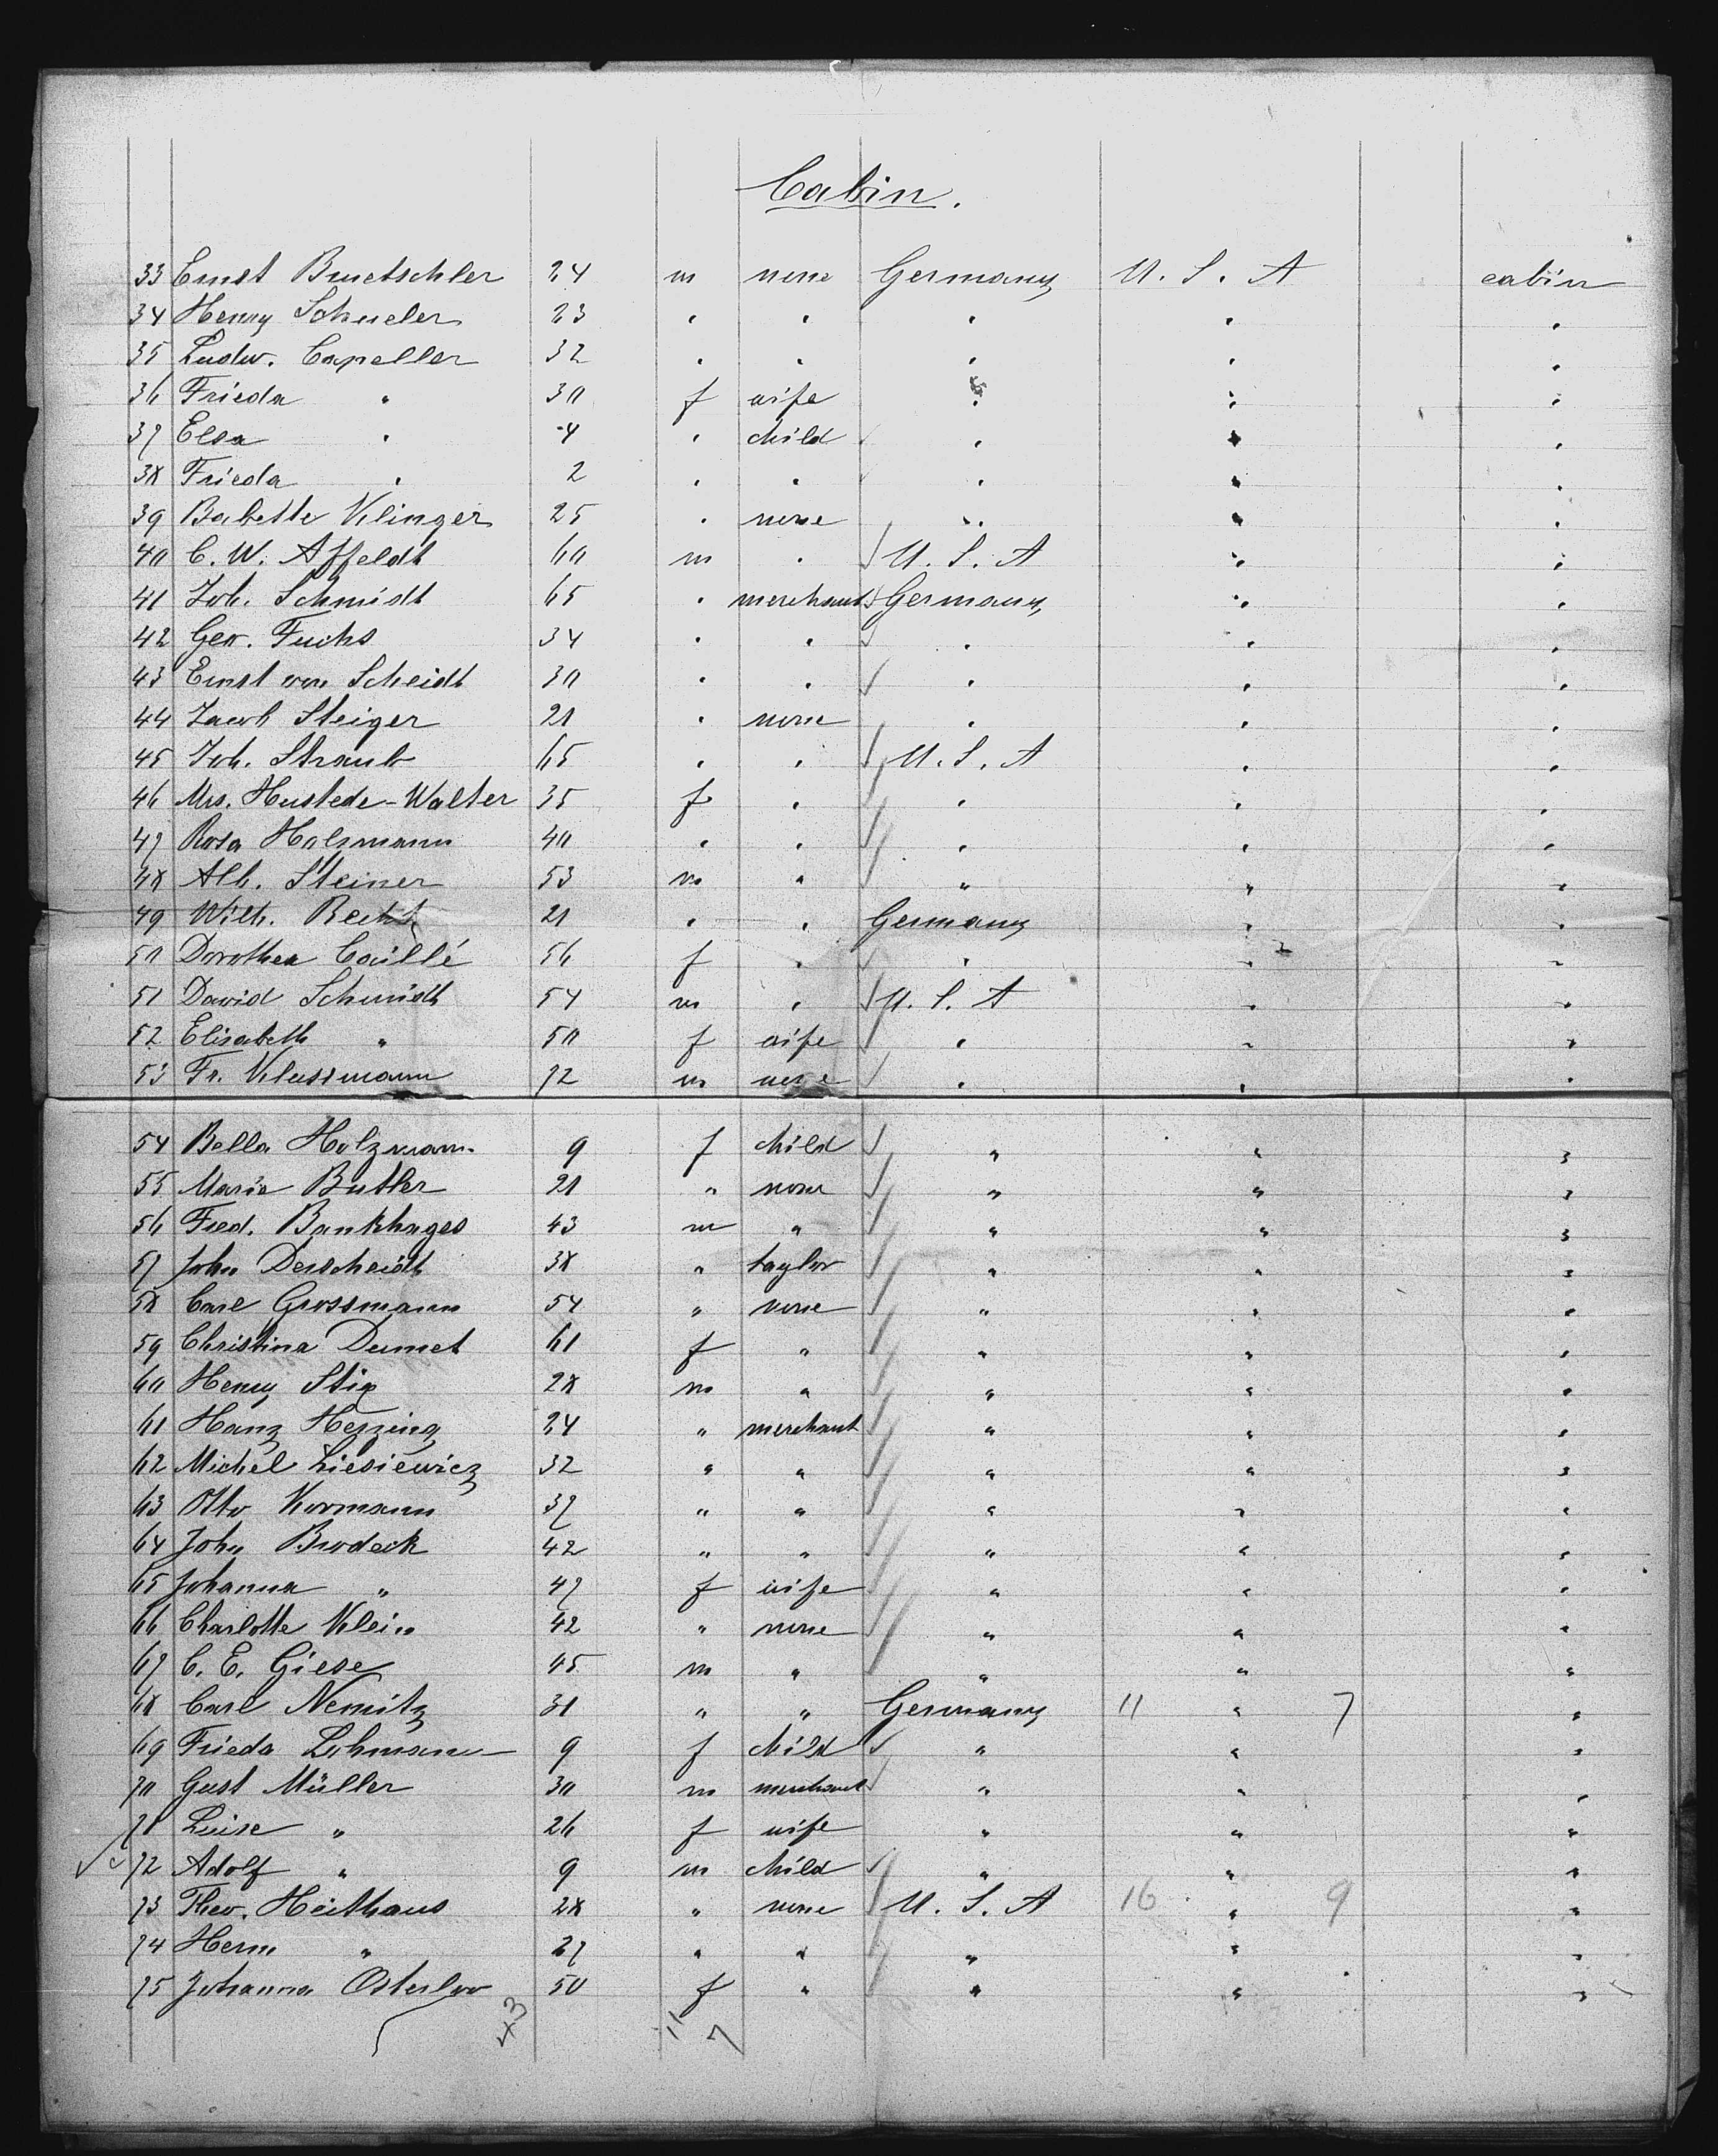 Cabin.
33 Ernst Bruetschler 24 m none Germany U. S. A cabin
34 Henry Schueler 23 " " " " "
35 Ludw. Capeller 32 " " " " "
36 Frieda " 30 f wife " " "
37 Elsa " 4 " child " " "
38 Frieda " 2 " " " " "
39 Babette Klinger 25 " none " " "
40 C. W. Affeldt 60 m " U. S. A " "
41 Joh. Schmidt 65 " merchant Germany " "
42 Geo. Fuchs 34 " " " " "
43 Ernst von Scheidt 30 " " " " "
44 Jacob Steiger 21 " none " " "
45 Joh. Straub 65 " " U. S. A " "
46 Mrs. Hustede-Walter 35 f " " " "
47 Rosa Holzmann 40 " " " " "
48 Alb. Steiner 53 m " " " "
49 Wilh. Becht 21 " " Germany " "
50 Dorothea Caillé 56 f " " " "
51 David Schmidt 54 m " U. S. A " "
52 Elisabeth " 50 f wife " " "
53 Fr. Klussmann 72 m none " " "
54 Bella Holzmann 9 f child " " "
55 Marie Butler 21 " none " " "
56 Fred. Bankhages 43 m " " " "
57 John Derscheidt 38 " taylor " " "
58 Carl Grossmann 54 " none " " "
59 Christina Dumet 61 f " " " "
60 Henry Stix 28 m " " " "
61 Hanz Herzing 24 " merchant " " "
62 Michel Liesiewicz 32 " " " " "
63 Otto Kormann 37 " " " " "
64 John Brodeck 42 " " " " "
65 Johanna " 47 f wife " " "
66 Charlotte Klein 42 " none " " "
67 C. E. Giese 45 m " " " "
68 Carl Nemitz 31 " " Germany 11 " 7 "
69 Frieda Lohmann 9 f child " " "
70 Gust Müller 30 m merchant " " "
71 Luise " 26 f wife " " "
72 Adolf " 9 m child " " "
73 Theo. Heithaus 28 " none U. S. A 16 " 9 "
74 Herm " 27 " " " " "
75 Johanna Osterloo 50 f " " " "
43 11 7